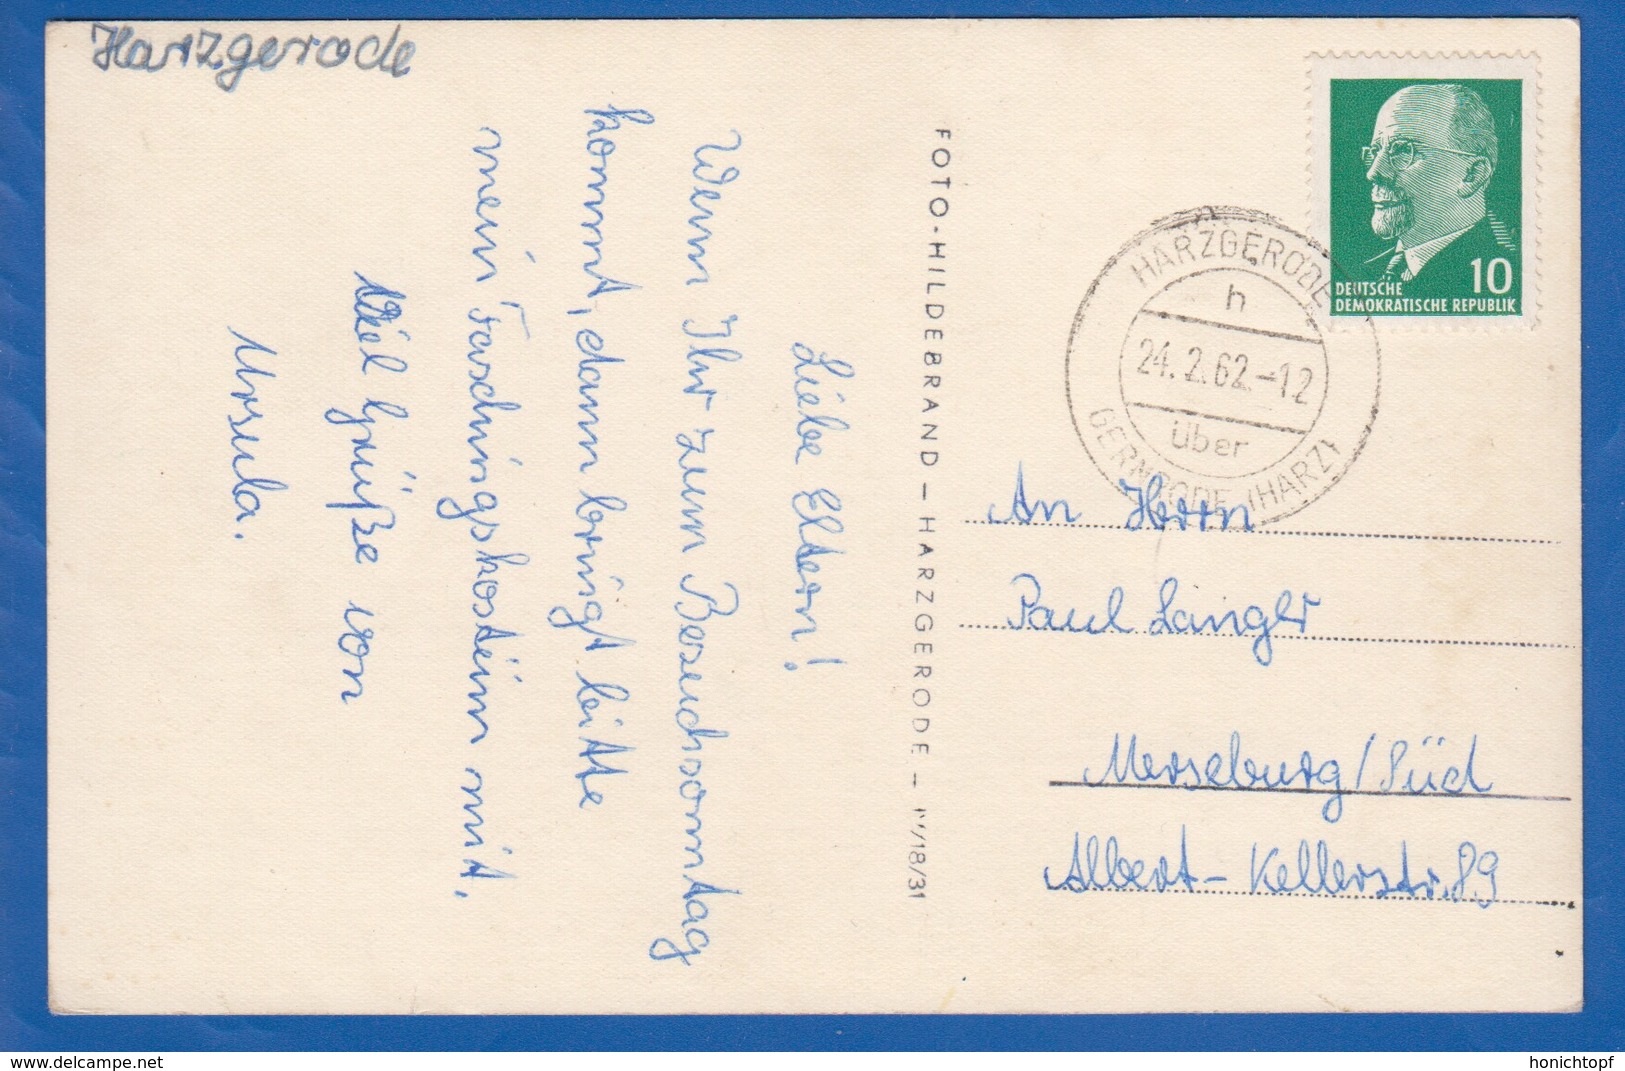 Harzgerode
Liebe Eltern!
Wenn Ihr zum Besuchsonntag
kommt, dann bringt bitte
mein Faschingskostüm mit.
Viel Grüße von
Ursula.
FOTO-HILDEBRAND – HARZGERODE – IV/18/31
10
DEUTSCHE
DEMOKRATISCHE REPUBLIK
HARZGERODE
h
24.2.62.-12
über
GERNRODE (HARZ)
An Herrn
Paul Langer
Merseburg/Süd
Albert-Kellerstr. 89
delcampe.net
honichtopf